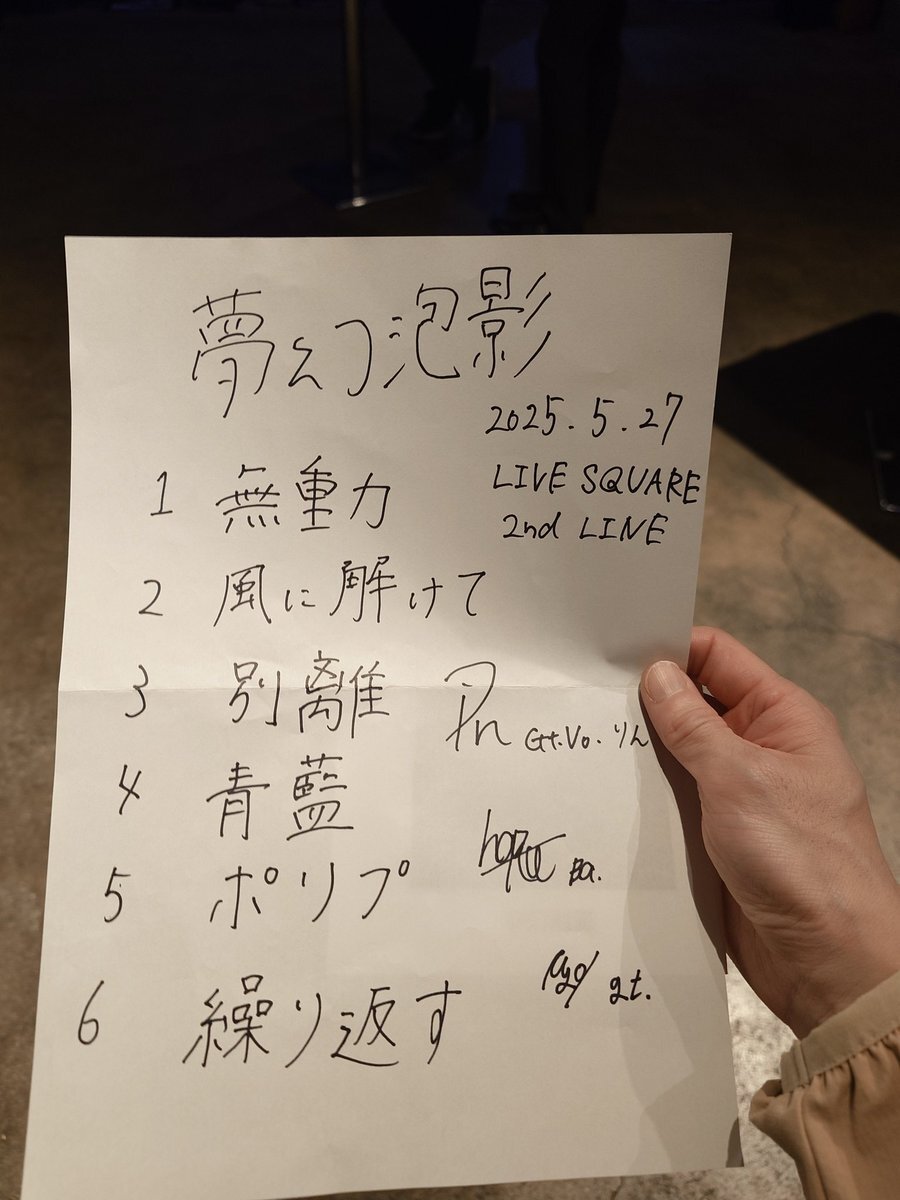 夢幻泡影
2025.5.27
LIVE SQUARE
2nd LINE
1 無重力
2 風に解けて
3 別離
Gt.Vo. りん
4 青藍
5 ポリプ
Ba.
6 繰り返す
gt.